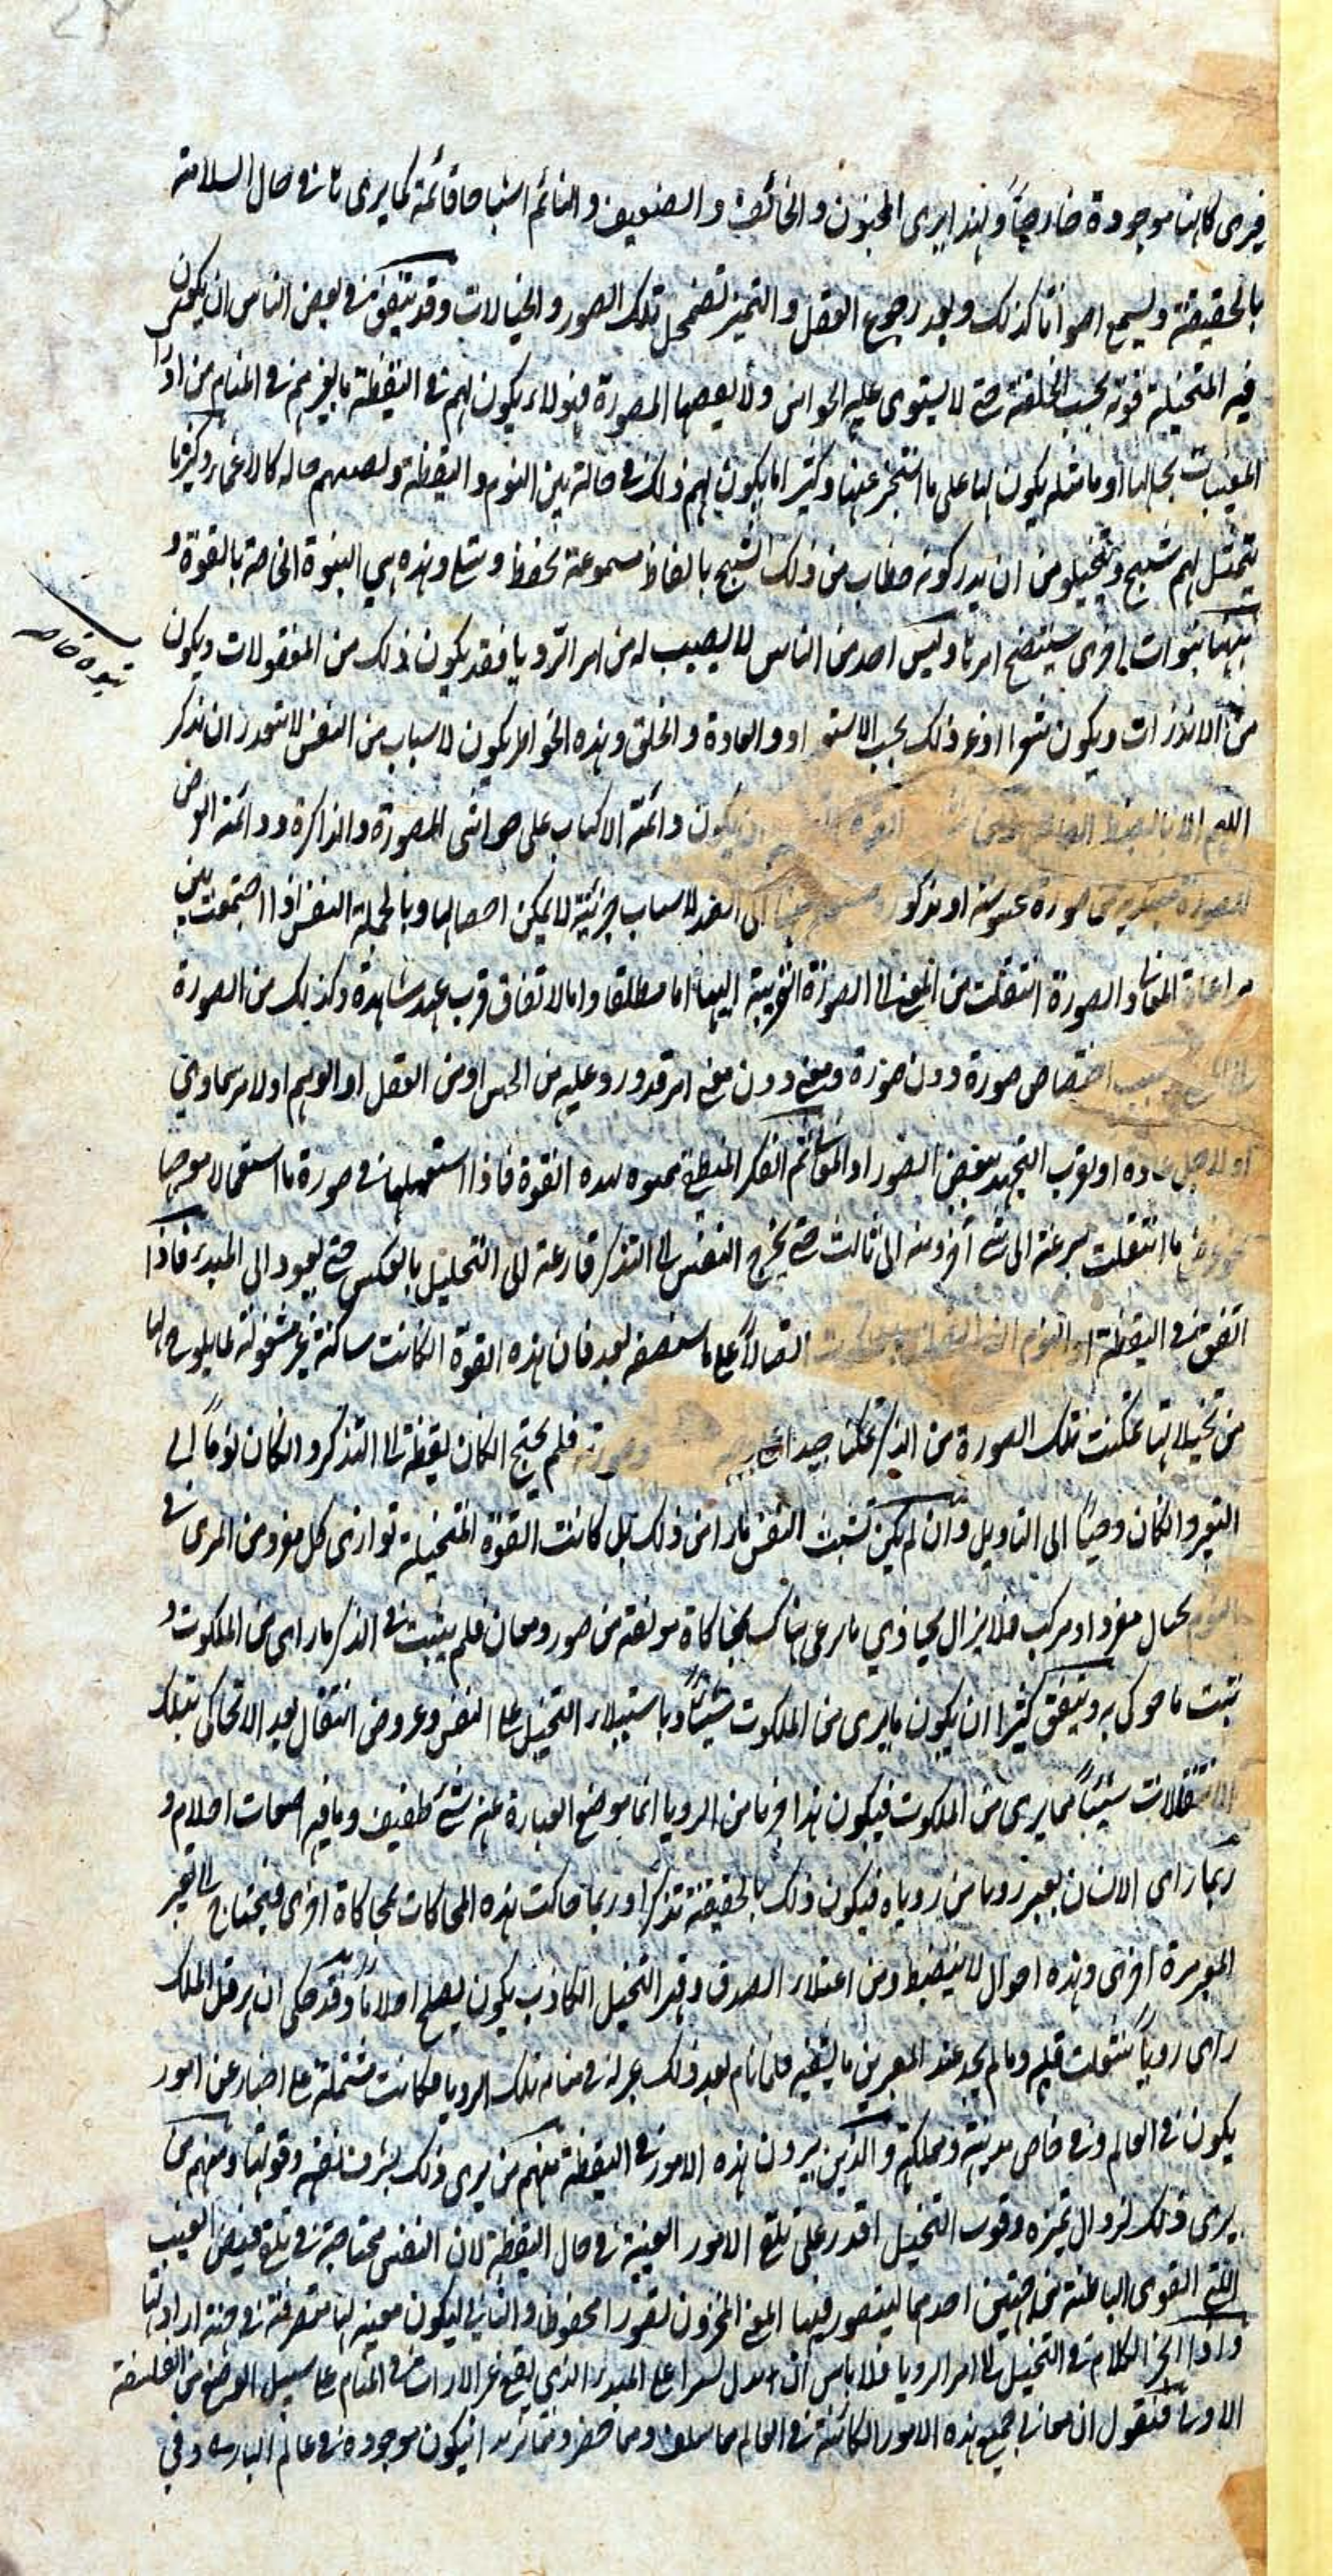 فيرى كانها موجودة خارجاً ولهذا يرى المجنون والخائف والضعيف والنائم اشباحا قائمة كما يرى نها في حال السلامة
بالحقيقة ويسمع اصواتا كذلك وبعد رجوع العقل والتميز تضمحل تلك الصور والخيالات وقد يتفق في بعض الناس ان يكون
فيه المتخيلة قوية بحسب الخلقة حتى لا يستوى عليه الحواس ولا يعصها المصورة فهولاء يكون لهم في اليقظة ما لغيرهم في المنام من ادراك
المغيبات بحالها او ما مثله يكون لها على ما استخبر عنها وكثيرا ما يكون لهم ذلك في حالة بين النوم واليقظة ويصيبهم حاله كالاغماء وكثيرا ما
يتمثل لهم شبح ويتخيلون ان يدركونه خطاب من ذلك الشبح بالفاظ مسموعة تحفظ وتتلى وهذه هي النبوة الخاصة بالقوة و
نبوات اخرى سيتضح امرها وليس احد من الناس لا يصيب له من امر الرويا فقد يكون ذلك من المعقولات ويكون
من الانذارات ويكون شعرا او غير ذلك بحسب الاستعداد والعادة والخلق وهذه الخواطر يكون لاسباب من النفس لا
يكون دائمة الاكباب على خزانتى المصورة والذاكرة ودائمة العرض
صورة محسوسة او مذكورة لاسباب جزئية لا يمكن احصائها وبالجملة النفس اذا اجتمعت بين
مراعاة المعانى والصورة انتقلت من المعنى الى الصورة القريبة اليها اما مطلقا واما لاتفاق قرب عهد مشاهدة وكذلك من الصورة
اختصاص صورة دون صورة ومعنى دون معنى امر قد ورد عليه من الحس او من العقل او الوهم او لامر سماوي
عادة او لقرب العهد ببعض الصور او المعانى ثم الفكر المنطقى ممنوه بهذه القوة فاذا استعملها في صورة ما استعمالا موجها
ما انتقلت بسرعة الى شئ آخر ومنه الى ثالث حتى يخرج النفس الى التذكر قارعة الى التحليل بالعكس حتى يعود الى المبدء فاذا
اتفق في اليقظة او النوم اتصالاً على ما سنصفه بعد فان هذه القوة ان كانت ساكنة غير مشغولة
من تخيلاتها تمكنت تلك الصورة من الذكر تمكنا جيدا فلم يحتج ان كان يقظة الى التذكر وان كان نوماً الى
التعبير وان كان وحيًا الى التاويل وان لم يكن تشبث النفس ما راى من ذلك بل كانت القوة المتخيلة توازى كل مفرد من المرئى في
بحيال مفرد او مركب فلا يزال يحاذي ما يرى هناك بمحاكاة مؤلفة من صور ومعان فلم يثبت في الذكر ما راى من الملكوت و
ثبت ما حوكى به ويتفق كثيرا ان يكون ما يرى من الملكوت شيئاً وباستيلاء التخيل على النفس وعروض انتقال بعد الاتحاكى بتلك
الانتقلات شيئاً مما يرى من الملكوت فيكون هذا من الرويا انما موضع العبارة عنه شئ طفيف وباقيه اضغاث احلام و
ربما راى الانسان تعبير روياه من روياه فيكون ذلك بالحقيقة تذكرا وربما حاكت هذه المحاكات بمحاكاة اخرى فيحتاج الى تعبير
المعبر مرة اخرى وهذه احوال لا ينضبط ومن اعتلاء الصدق وقهر التخيل الكاذب يكون يصلح احلاماً وقد حكى ان هرقل الملك
راى روياً شغلت قلبه وما لم يجد عند المعبرين ما يشفيه فلما نام بعد ذلك عبر له في منامه تلك الرويا فكانت مشتملة على اخبار عن امور
يكون في العالم وفى خاص مدينته ومملكته والذين يرون هذه الامور في اليقظة منهم من يرى ذلك بشرف نفسه وقوتها ومنهم من
يرى ذلك لزوال تميزه وقوت التخيل اقدر على تلقى الامور الغيبية في حال اليقظة لان النفس محتاجة في تلقى فيض الغيب
الى القوى الباطنة من جهتين احدهما ليتصور فيها المعنى المخزون تصورا محفوظا والثاني ليكون معينة لها متصرفة في جهة ارادتها
واذا انجر الكلام في التخيل الى امر الرويا فلا باس ان ندل يسيرا على المبدء الذي يقع عنه الانذارات في المنام على سبيل الوضع من الفلسفة
الاولى فنقول ان معانى جميع هذه الامور الكائنة في العالم مما سلف ومما حضر ومما يريد ان يكون موجودة في عالم البارى وفي
نبوة خاصه